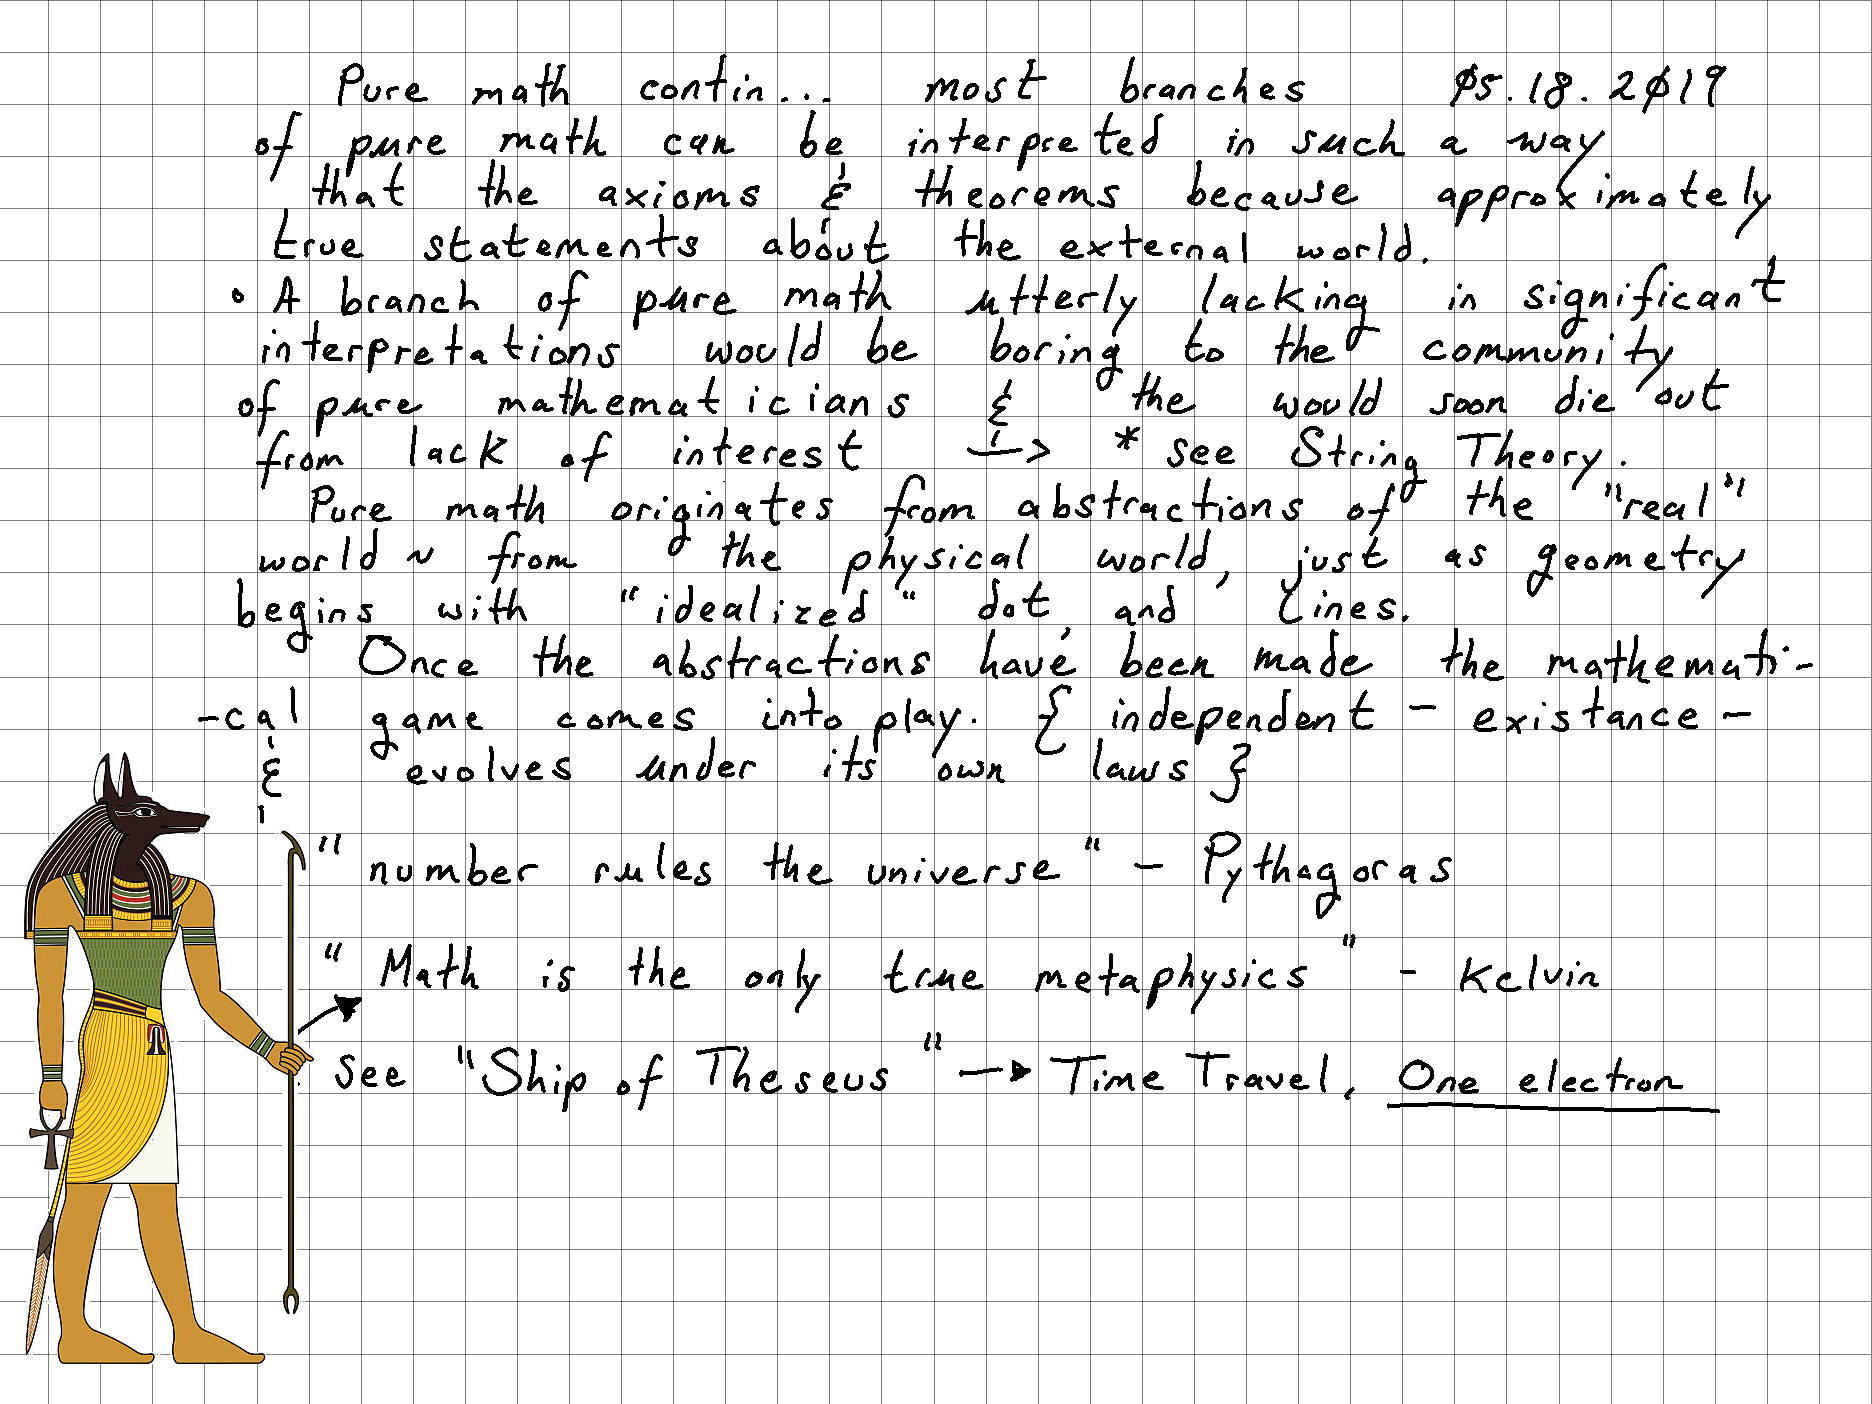 Pure math contin... most branches 05.18.2019
of pure math can be interpreted in such a way
that the axioms & theorems because approximately
true statements about the external world.
• A branch of pure math utterly lacking in significant
interpretations would be boring to the community
of pure mathematicians & the would soon die out
from lack of interest —> * see String Theory.
Pure math originates from abstractions of the "real"
world ~ from the physical world, just as geometry
begins with "idealized" dot, and lines.
Once the abstractions have been made the mathemati-
-cal game comes into play. { independent - existance -
& evolves under its own laws }
"number rules the universe" - Pythagoras
"Math is the only true metaphysics" - Kelvin
see "Ship of Theseus" → Time Travel, One electron